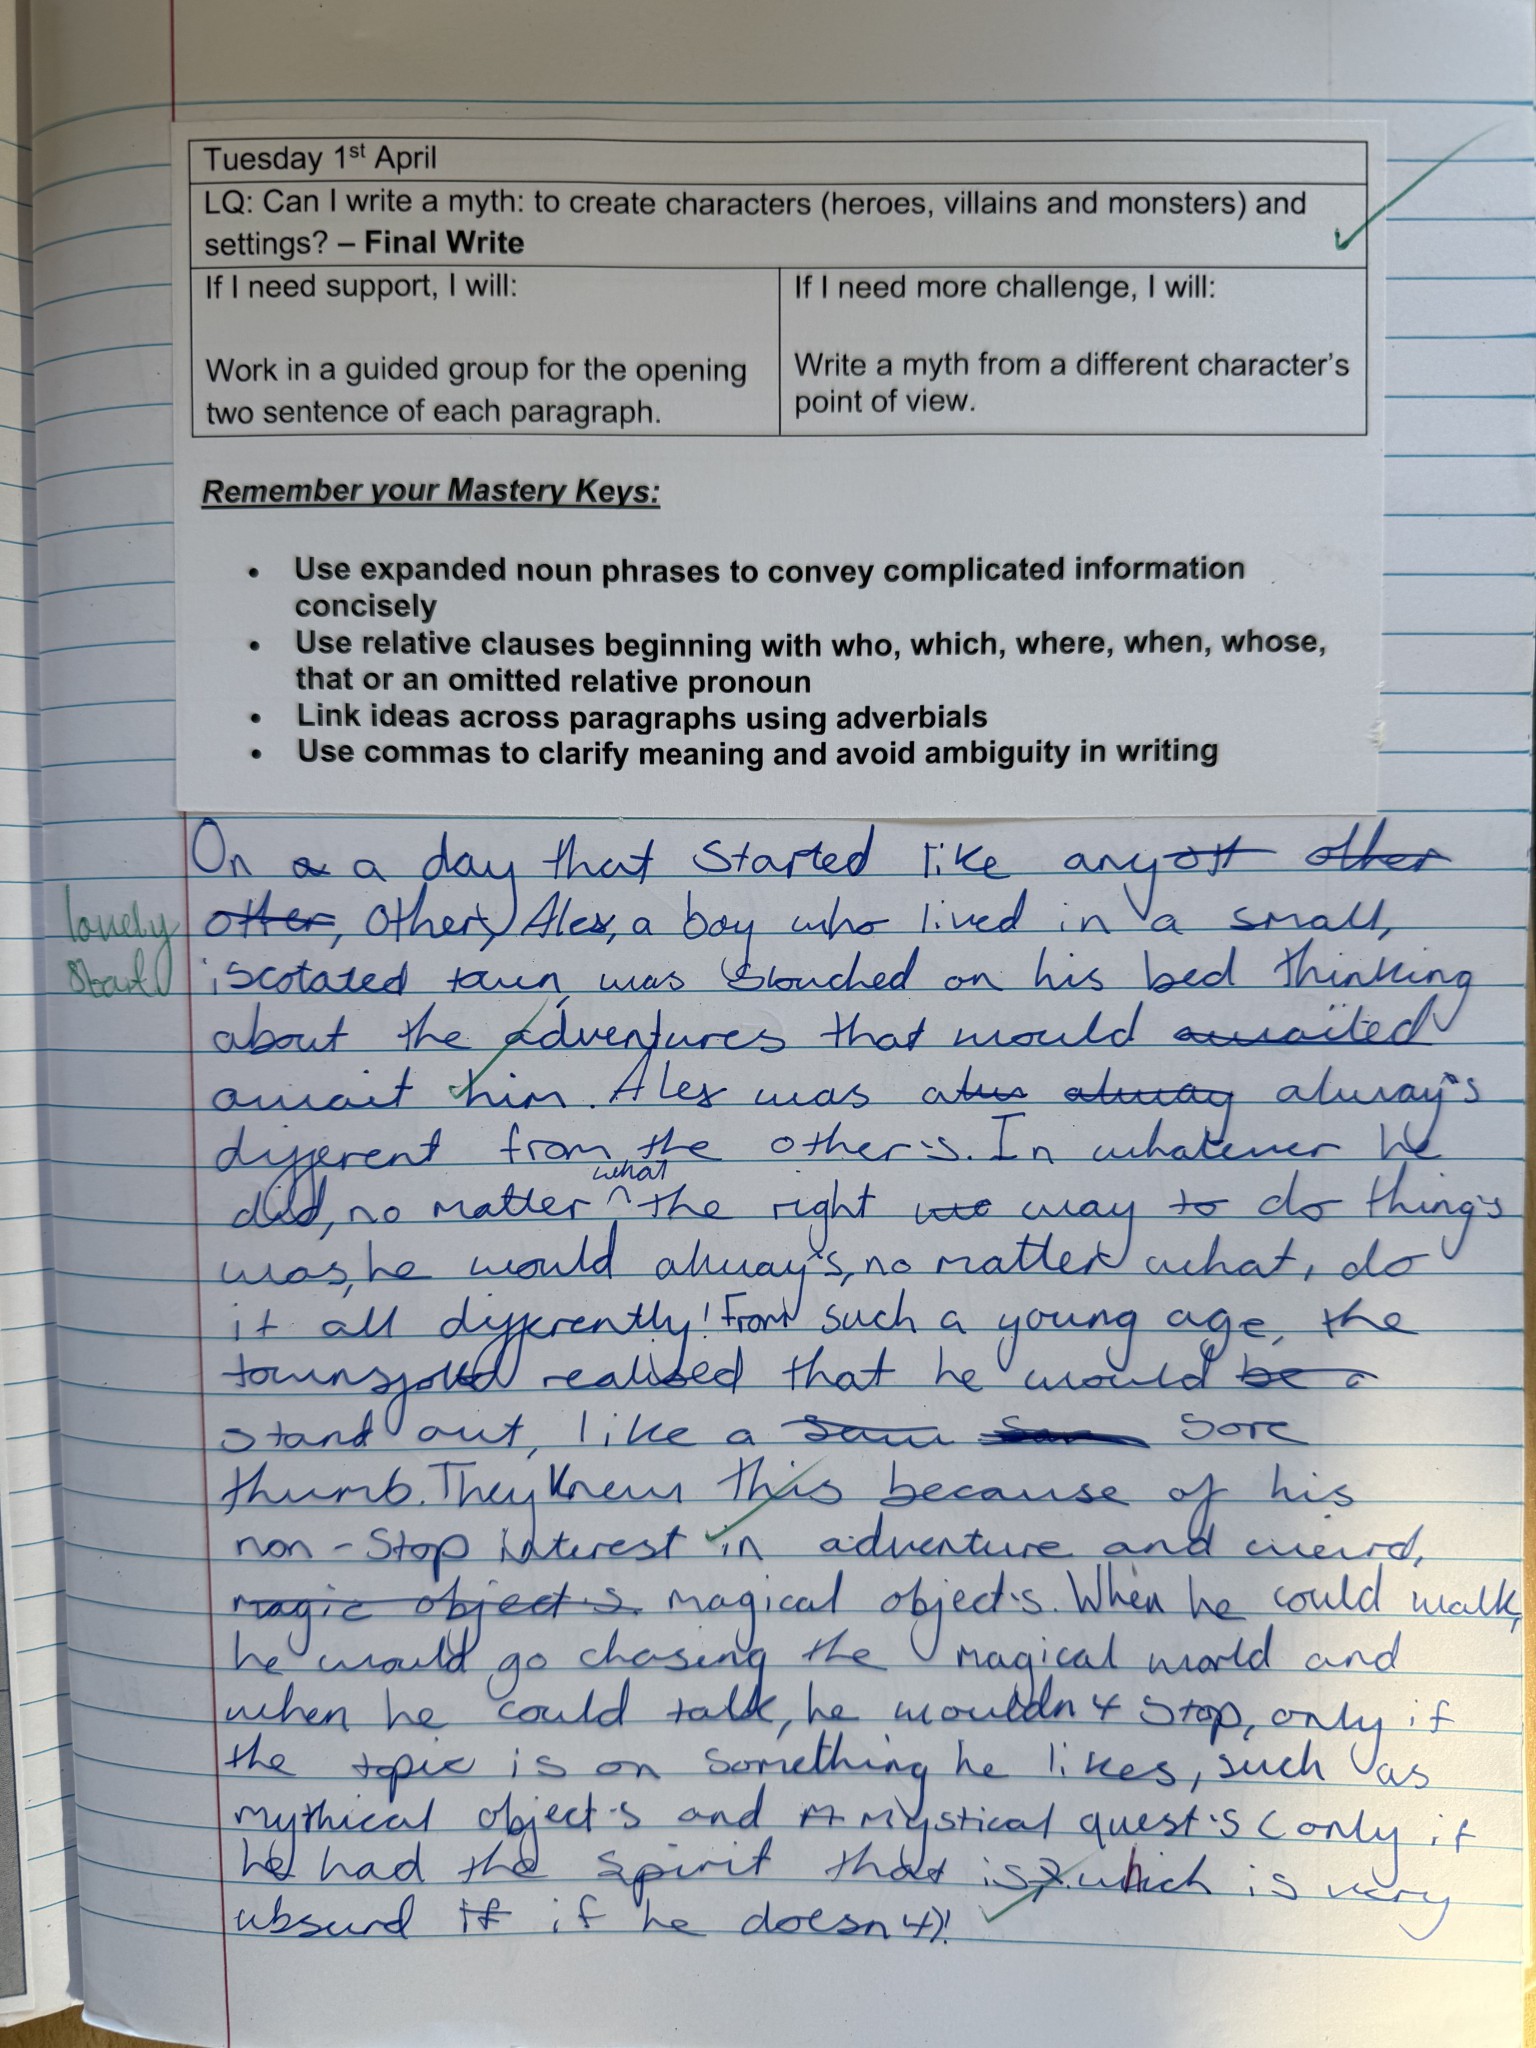 Tuesday 1st April
LQ: Can I write a myth: to create characters (heroes, villains and monsters) and
settings? – Final Write
If I need support, I will:
Work in a guided group for the opening
two sentence of each paragraph.
If I need more challenge, I will:
Write a myth from a different character's
point of view.
Remember your Mastery Keys:
• Use expanded noun phrases to convey complicated information
concisely
• Use relative clauses beginning with who, which, where, when, whose,
that or an omitted relative pronoun
• Link ideas across paragraphs using adverbials
• Use commas to clarify meaning and avoid ambiguity in writing
lovely
start
On a a day that started like anyott other
otter, other, Alex, a boy who lived in a small,
iscotated town, was slouched on his bed thinking
about the adventures that would awaited
await him. Alex was alws alway alway's
different from the other's. In whatever he
did, no matter what the right wo way to do thing's
was, he would alway's, no matter what, do
it all differently! From such a young age, the
realised that he would be a
stand out, like a sore
thumb. They knew this because of his
non-stop interest in adventure and weird,
magic object's. magical object's. When he could walk,
he would go chasing the magical world and
when he could talk, he wouldn't stop, only if
the topic is on something he likes, such as
mythical object's and M mystical quest's (only if
he had the spirit that is, which is very
absurd if if he doesn't)!